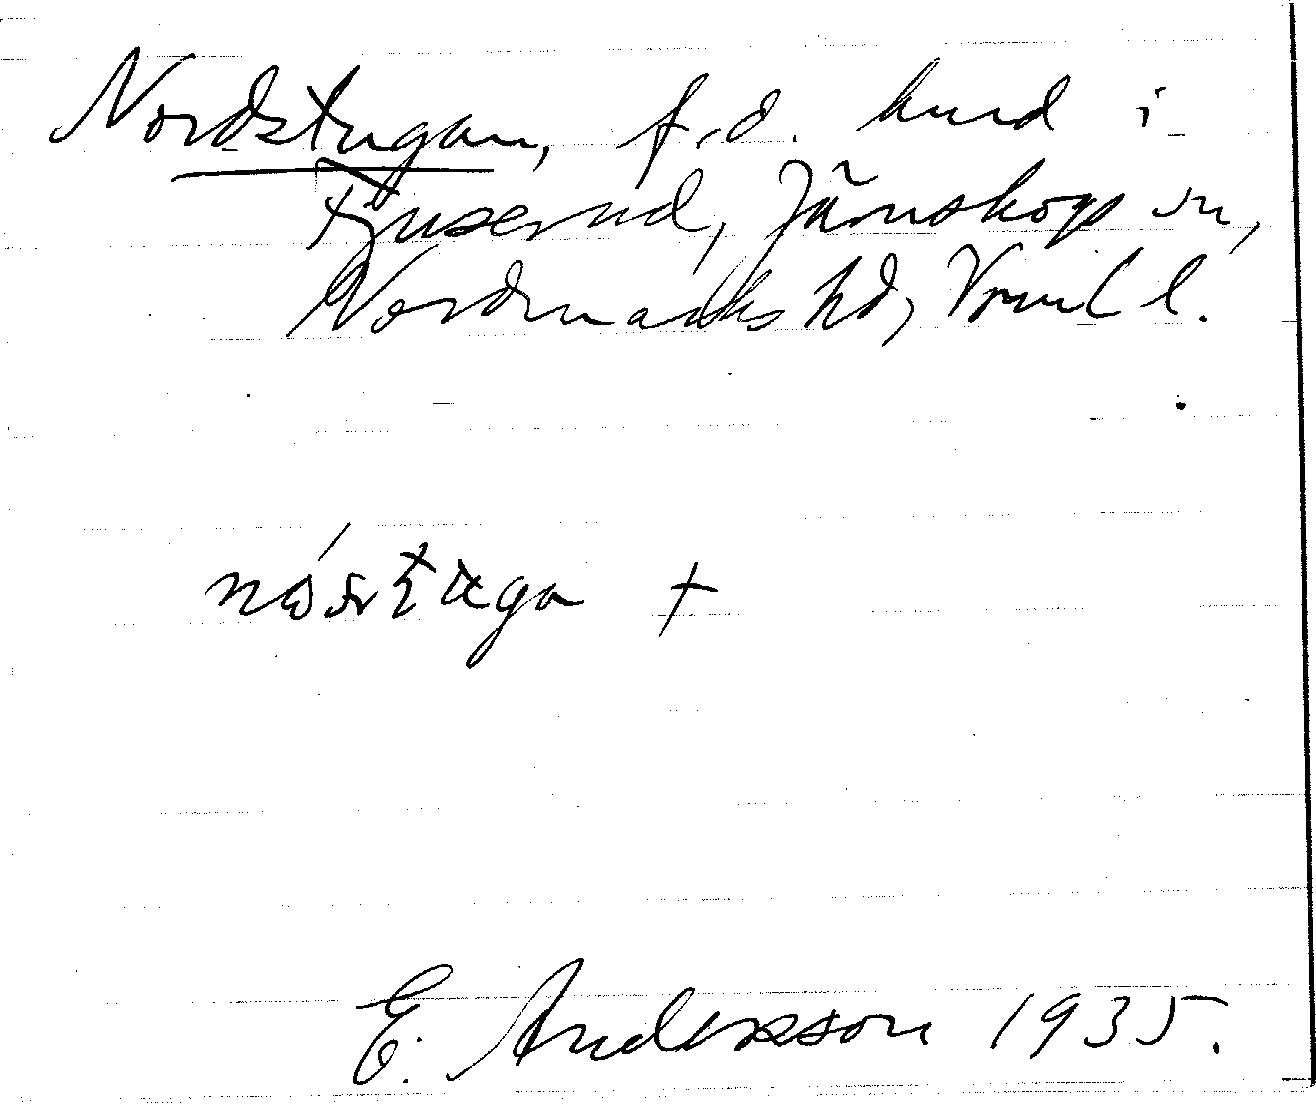 Nordstugan, f.d. hmd i
Tjuserud, Järnskogs sn,
Nordmarks hd, Vrml l.
E. Andersson 1935.